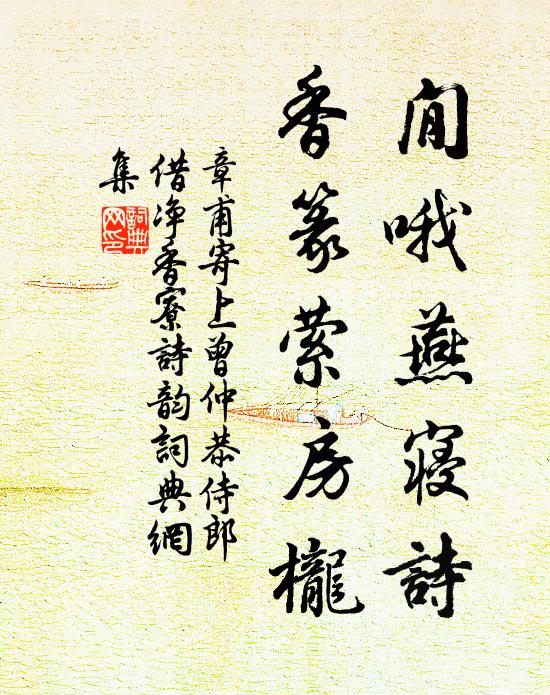 閒哦燕寢詩
香篆縈房櫳
章甫寄上曾仲恭侍郎
借净香寮詩韵詞典網
集
詞典网印